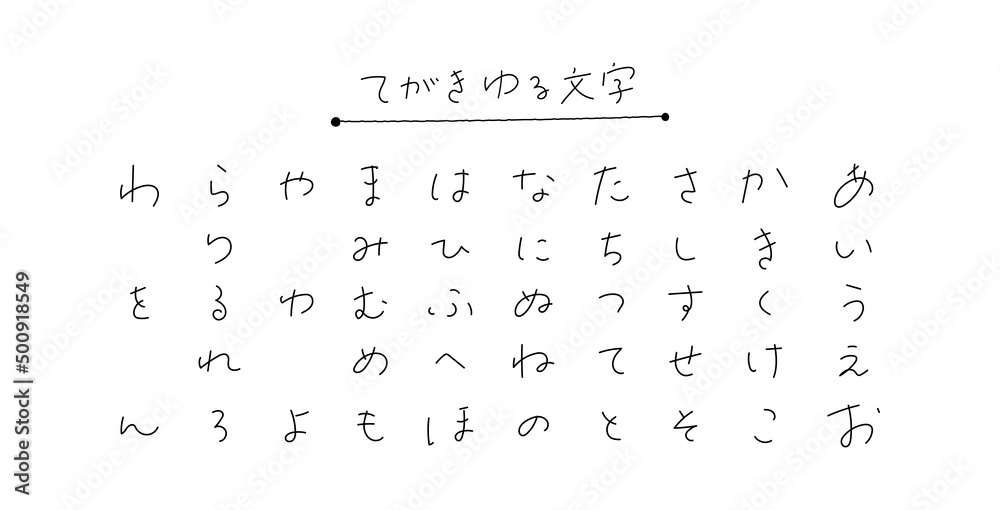 てがきゆる文字
あいうえお
かきくけこ
さしすせそ
たちつてと
なにぬねの
はひふへほ
まみむめも
やゆよ
らりるれろ
わをん
Adobe Stock | #500918549
Adobe Stock